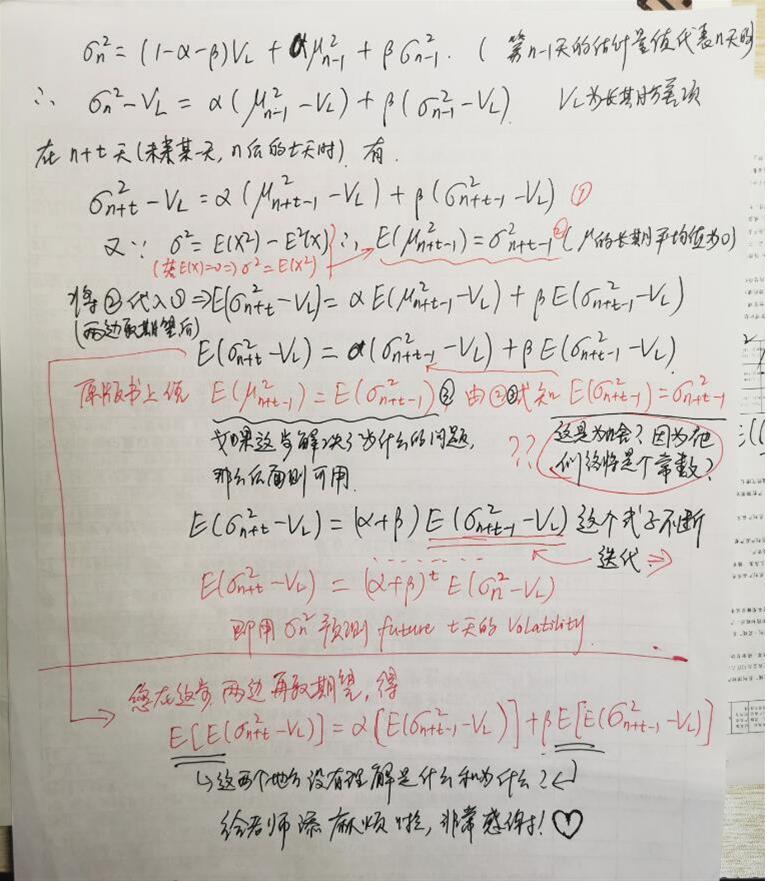 σn² = (1-α-β)VL + αμ²n-1 + βσ²n-1. (第n-1天的估计量值代表n天的)
∴ σn²-VL = α(μ²n-1-VL) + β(σ²n-1-VL). VL为长期方差项
在n+t天(未来某一天, n后的t天时) 有.
σ²n+t-VL = α(μ²n+t-1-VL) + β(σ²n+t-1-VL) ①
又∵ σ² = E(X²)-E²(X) ∴ E(μ²n+t-1) = σ²n+t-1 ② (μ的长期平均值为0)
(若E(X)=0 ⇒ σ²=E(X²))
将②代入① ⇒ E(σ²n+t-VL) = αE(μ²n+t-1-VL) + βE(σ²n+t-1-VL)
(两边取期望后)
E(σ²n+t-VL) = α(σ²n+t-1-VL) + βE(σ²n+t-1-VL)
原版书上说 E(μ²n+t-1) = E(σ²n+t-1) ③ 由②③式知 E(σ²n+t-1) = σ²n+t-1
如果这步解决了为什么的问题,
那么后面则可用.
?? 这是为啥? 因为他
们终将是个常数?
E(σ²n+t-VL) = (α+β)E(σ²n+t-1-VL) 这个式子不断
迭代 ⇒
E(σ²n+t-VL) = (α+β)ᵗ E(σn²-VL)
即用σn²预测future t天的Volatility.
您在这步, 两边再取期望, 得
E[E(σ²n+t-VL)] = α[E(σ²n+t-1-VL)] + βE[E(σ²n+t-1-VL)]
↳这两个地方没有理解是什么和为什么?↲
给老师添麻烦啦, 非常感谢! ♡